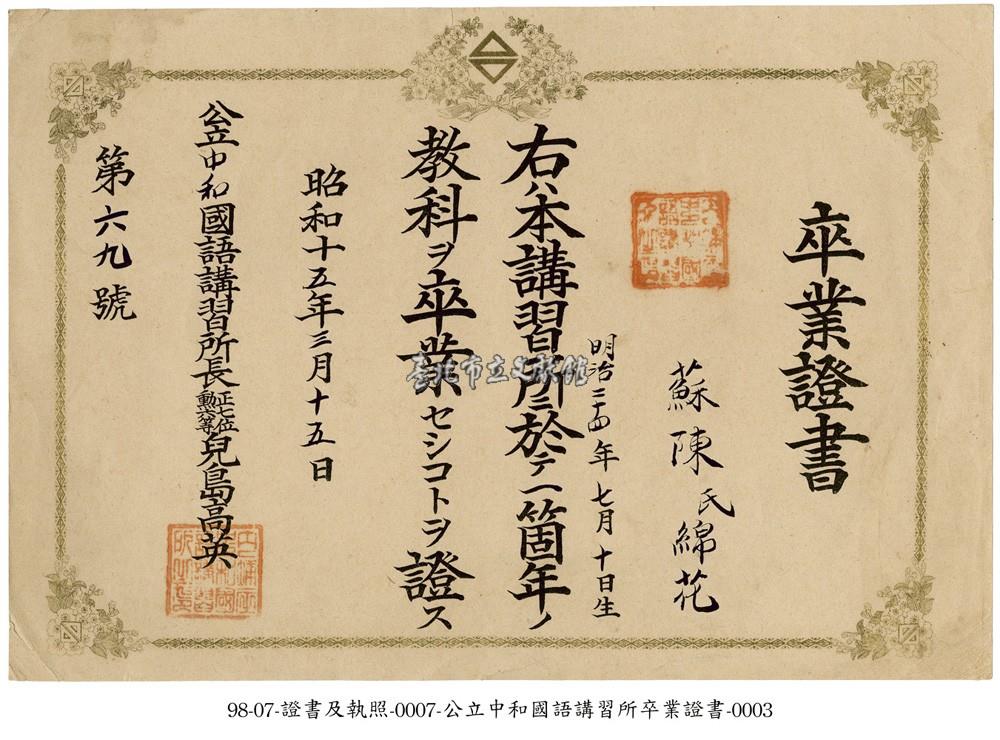 卒業證書
蘇陳氏綿花
明治三十四年七月十日生
右ハ本講習所ニ於テ一箇年ノ
教科ヲ卒業セシコトヲ證ス
昭和十五年三月十五日
公立中和國語講習所長正七位勲六等兒島高英
第六九號
臺北市立文獻館
98-07-證書及執照-0007-公立中和國語講習所卒業證書-0003